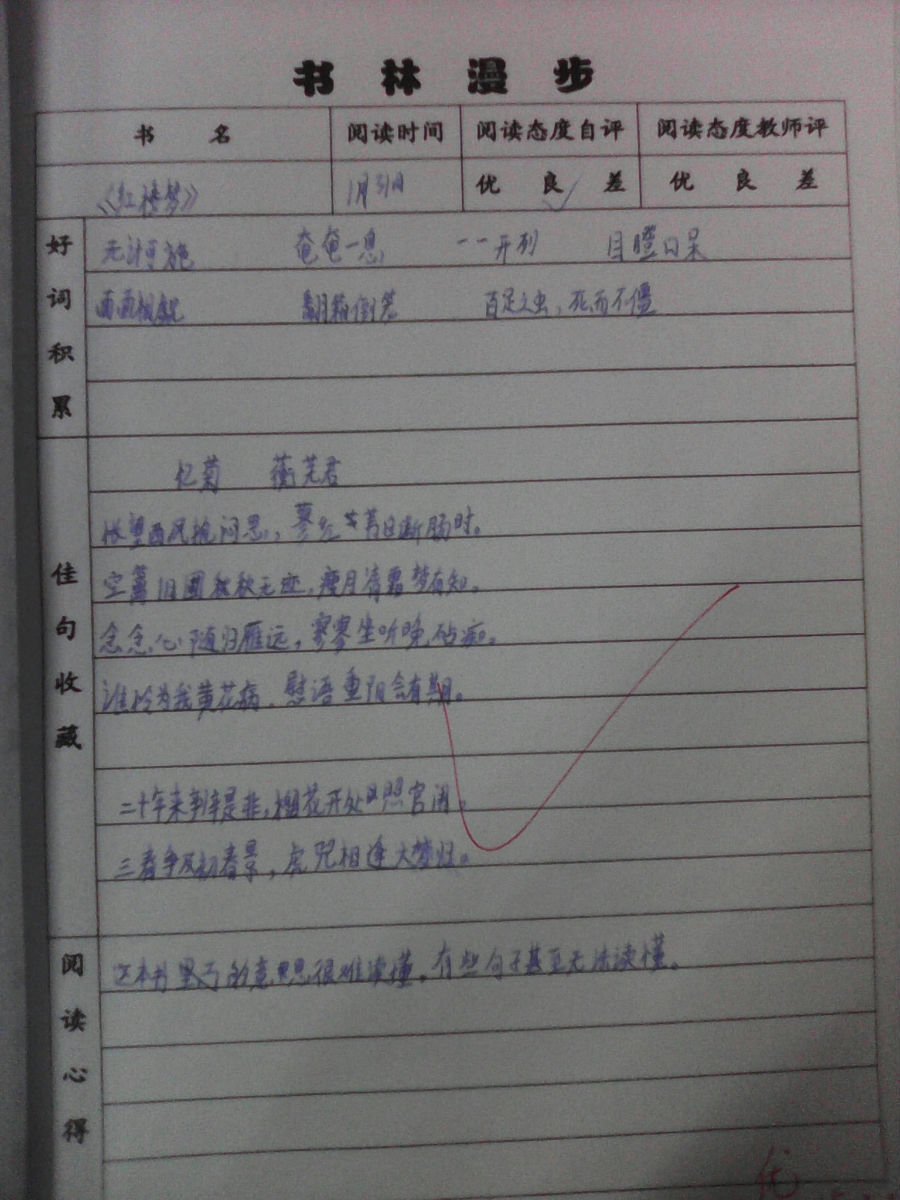 书林漫步
书名 阅读时间 阅读态度自评 阅读态度教师评
《红楼梦》 1月31日 优 良 差 优 良 差
好词积累
无计可施 奄奄一息 一一开列 目瞪口呆
面面相觑 翻箱倒笼 百足之虫，死而不僵
佳句收藏
忆菊 蘅芜君
怅望西风抱闷思，蓼红苇昔日断肠时。
空篱旧圃秋秋无迹，瘦月清霜梦有知。
念念心随归雁远，寥寥坐听晚砧痴。
谁怜为我黄花病，慰语重阳会有期。
二十年来辨是非，榴花开处照宫闱。
三春争及初春景，虎兕相逢大梦归。
阅读心得
这本书里写的意思很难读懂，有些句子甚至无法读懂。
优